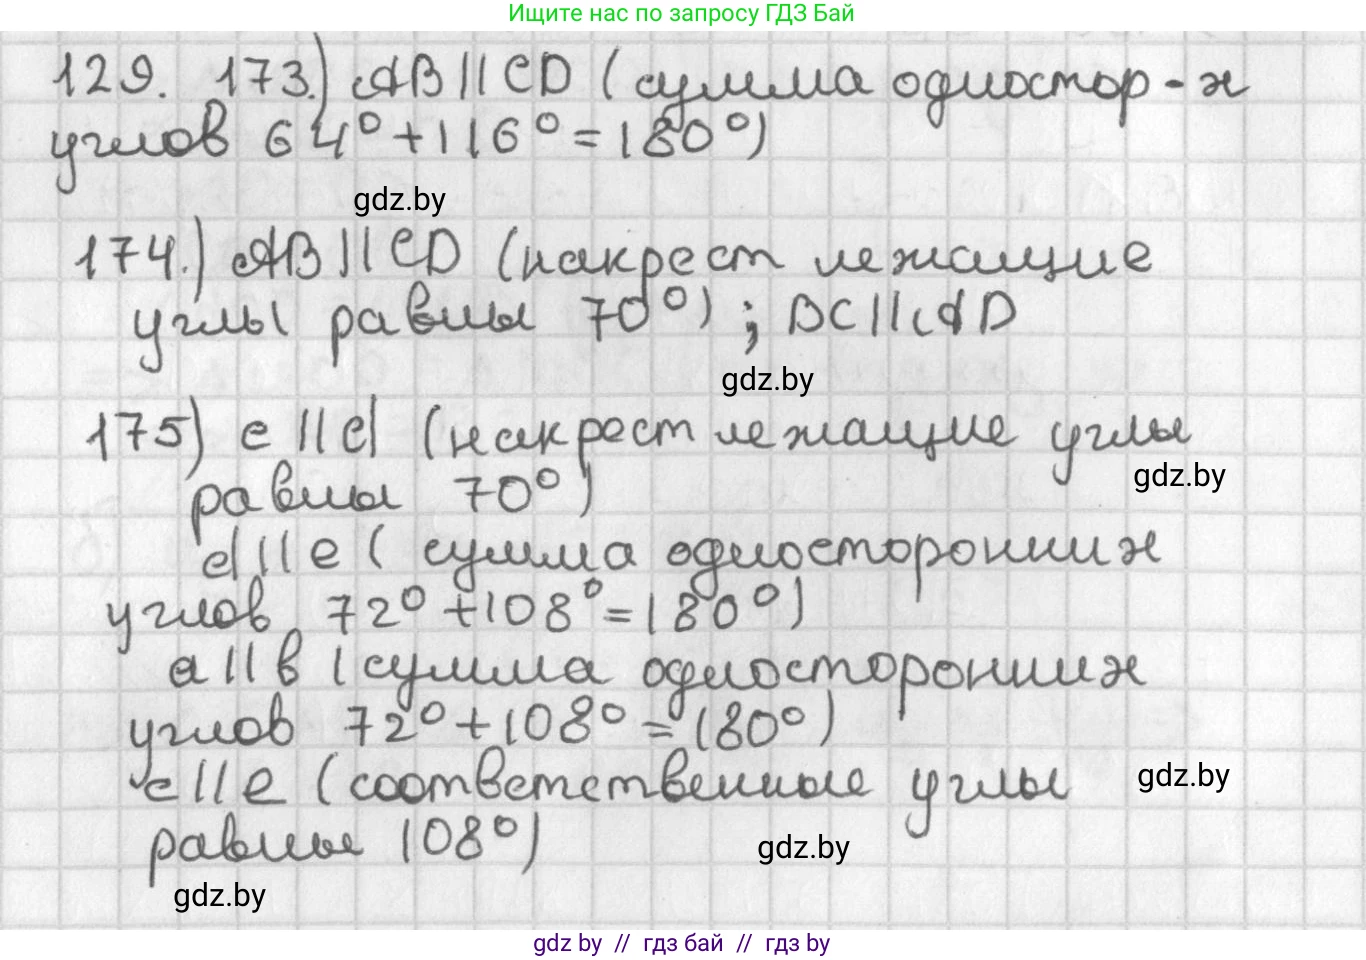 Ищите нас по запросу ГДЗ Бай
129. 173.) AB || CD (сумма одностор-х
углов 64° + 116° = 180°)
gdz.by
174.) AB || CD (накрест лежащие
углы равны 70°) ; BC || AD
gdz.by
175) c || d (накрест лежащие углы
gdz.by
равны 70°)
d || e ( сумма односторонних
углов 72° + 108° = 180°)
a || в (сумма односторонних
углов 72° + 108° = 180°)
c || e (соответственные углы
gdz.by
равны 108°)
gdz.by
gdz.by
gdz by // гдз бай // гдз by